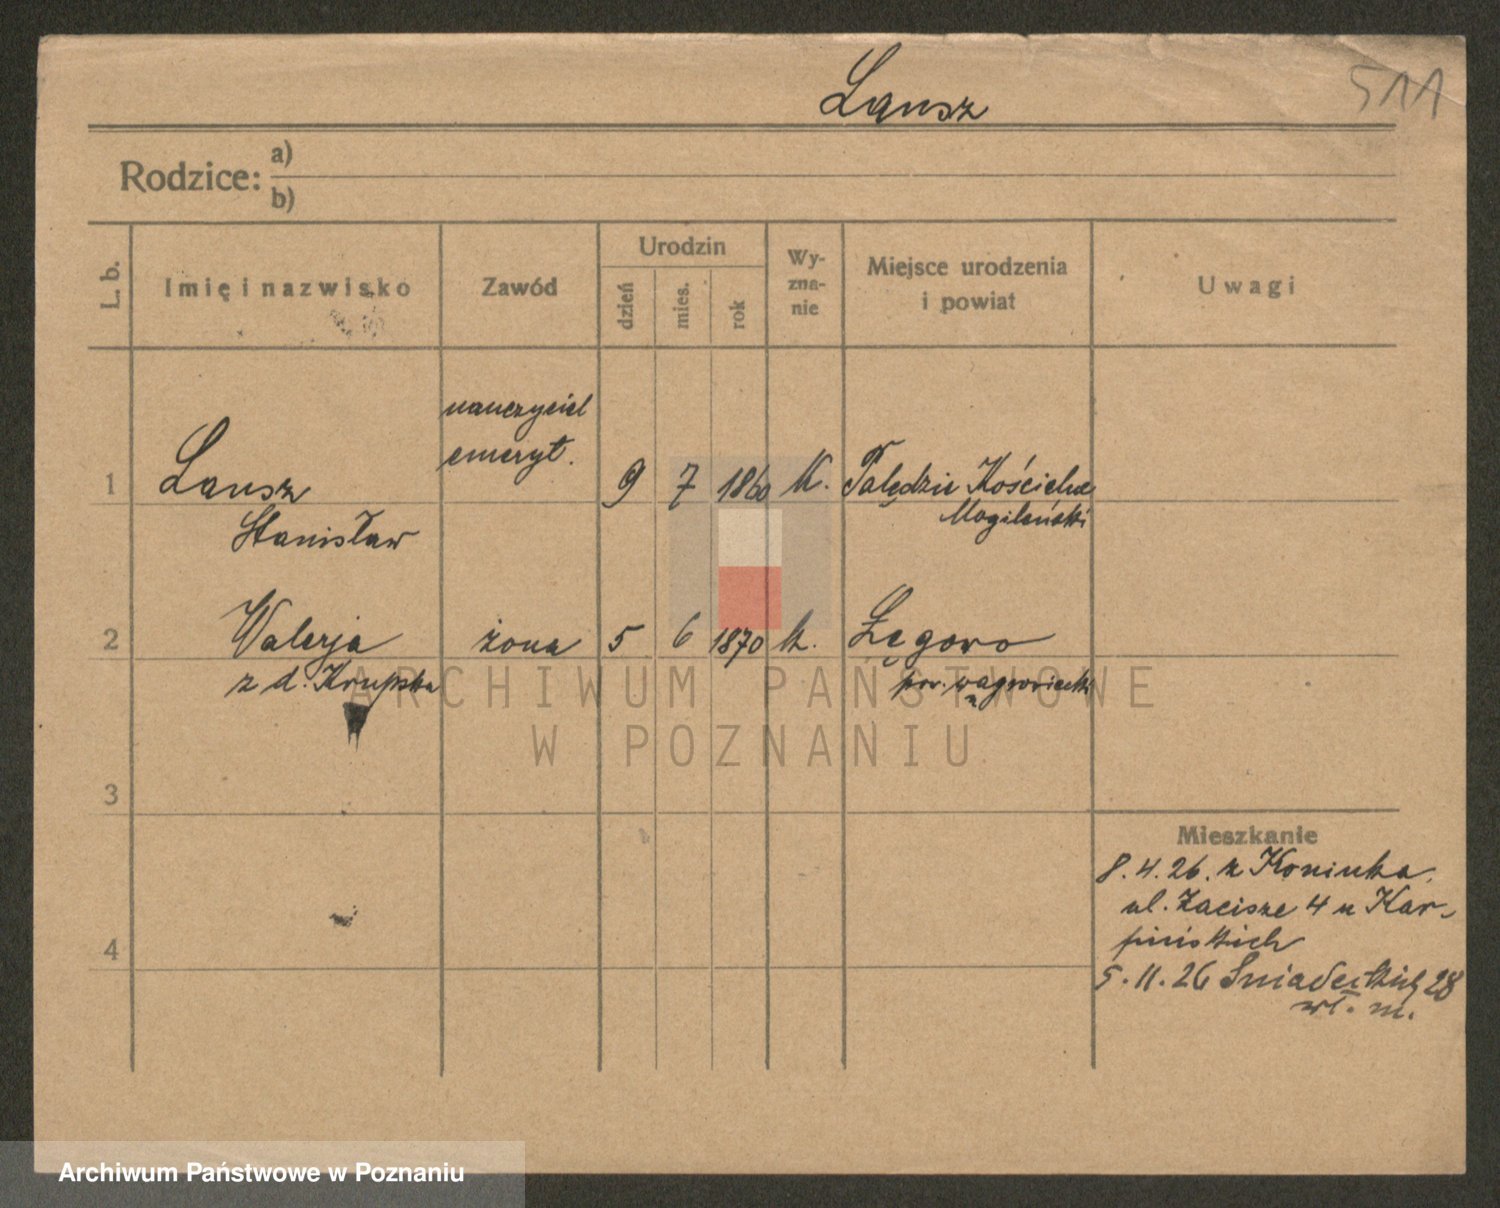 Lansz
511
Rodzice:
a)
b)
L. b.
Imię i nazwisko
Zawód
Urodzin
dzień
mies.
rok
Wy-
zna-
nie
Miejsce urodzenia
i powiat
Uwagi
nauczyciel
emeryt.
1 Lansz 9 7 1860 K. Palędzie Kościelne
Stanisław
Mogileński
2 Walerja żona 5 6 1870 k. Łęgowo
z d. Krupska
pow. wągrowiecki
ARCHIWUM PAŃSTWOWE
W POZNANIU
3
Mieszkanie
8.4.26. z Koninka.
ul. Zacisze 4 u Kar-
pińskich
4
5.11.26 Śniadeckich 28
wł. m.
Archiwum Państwowe w Poznaniu